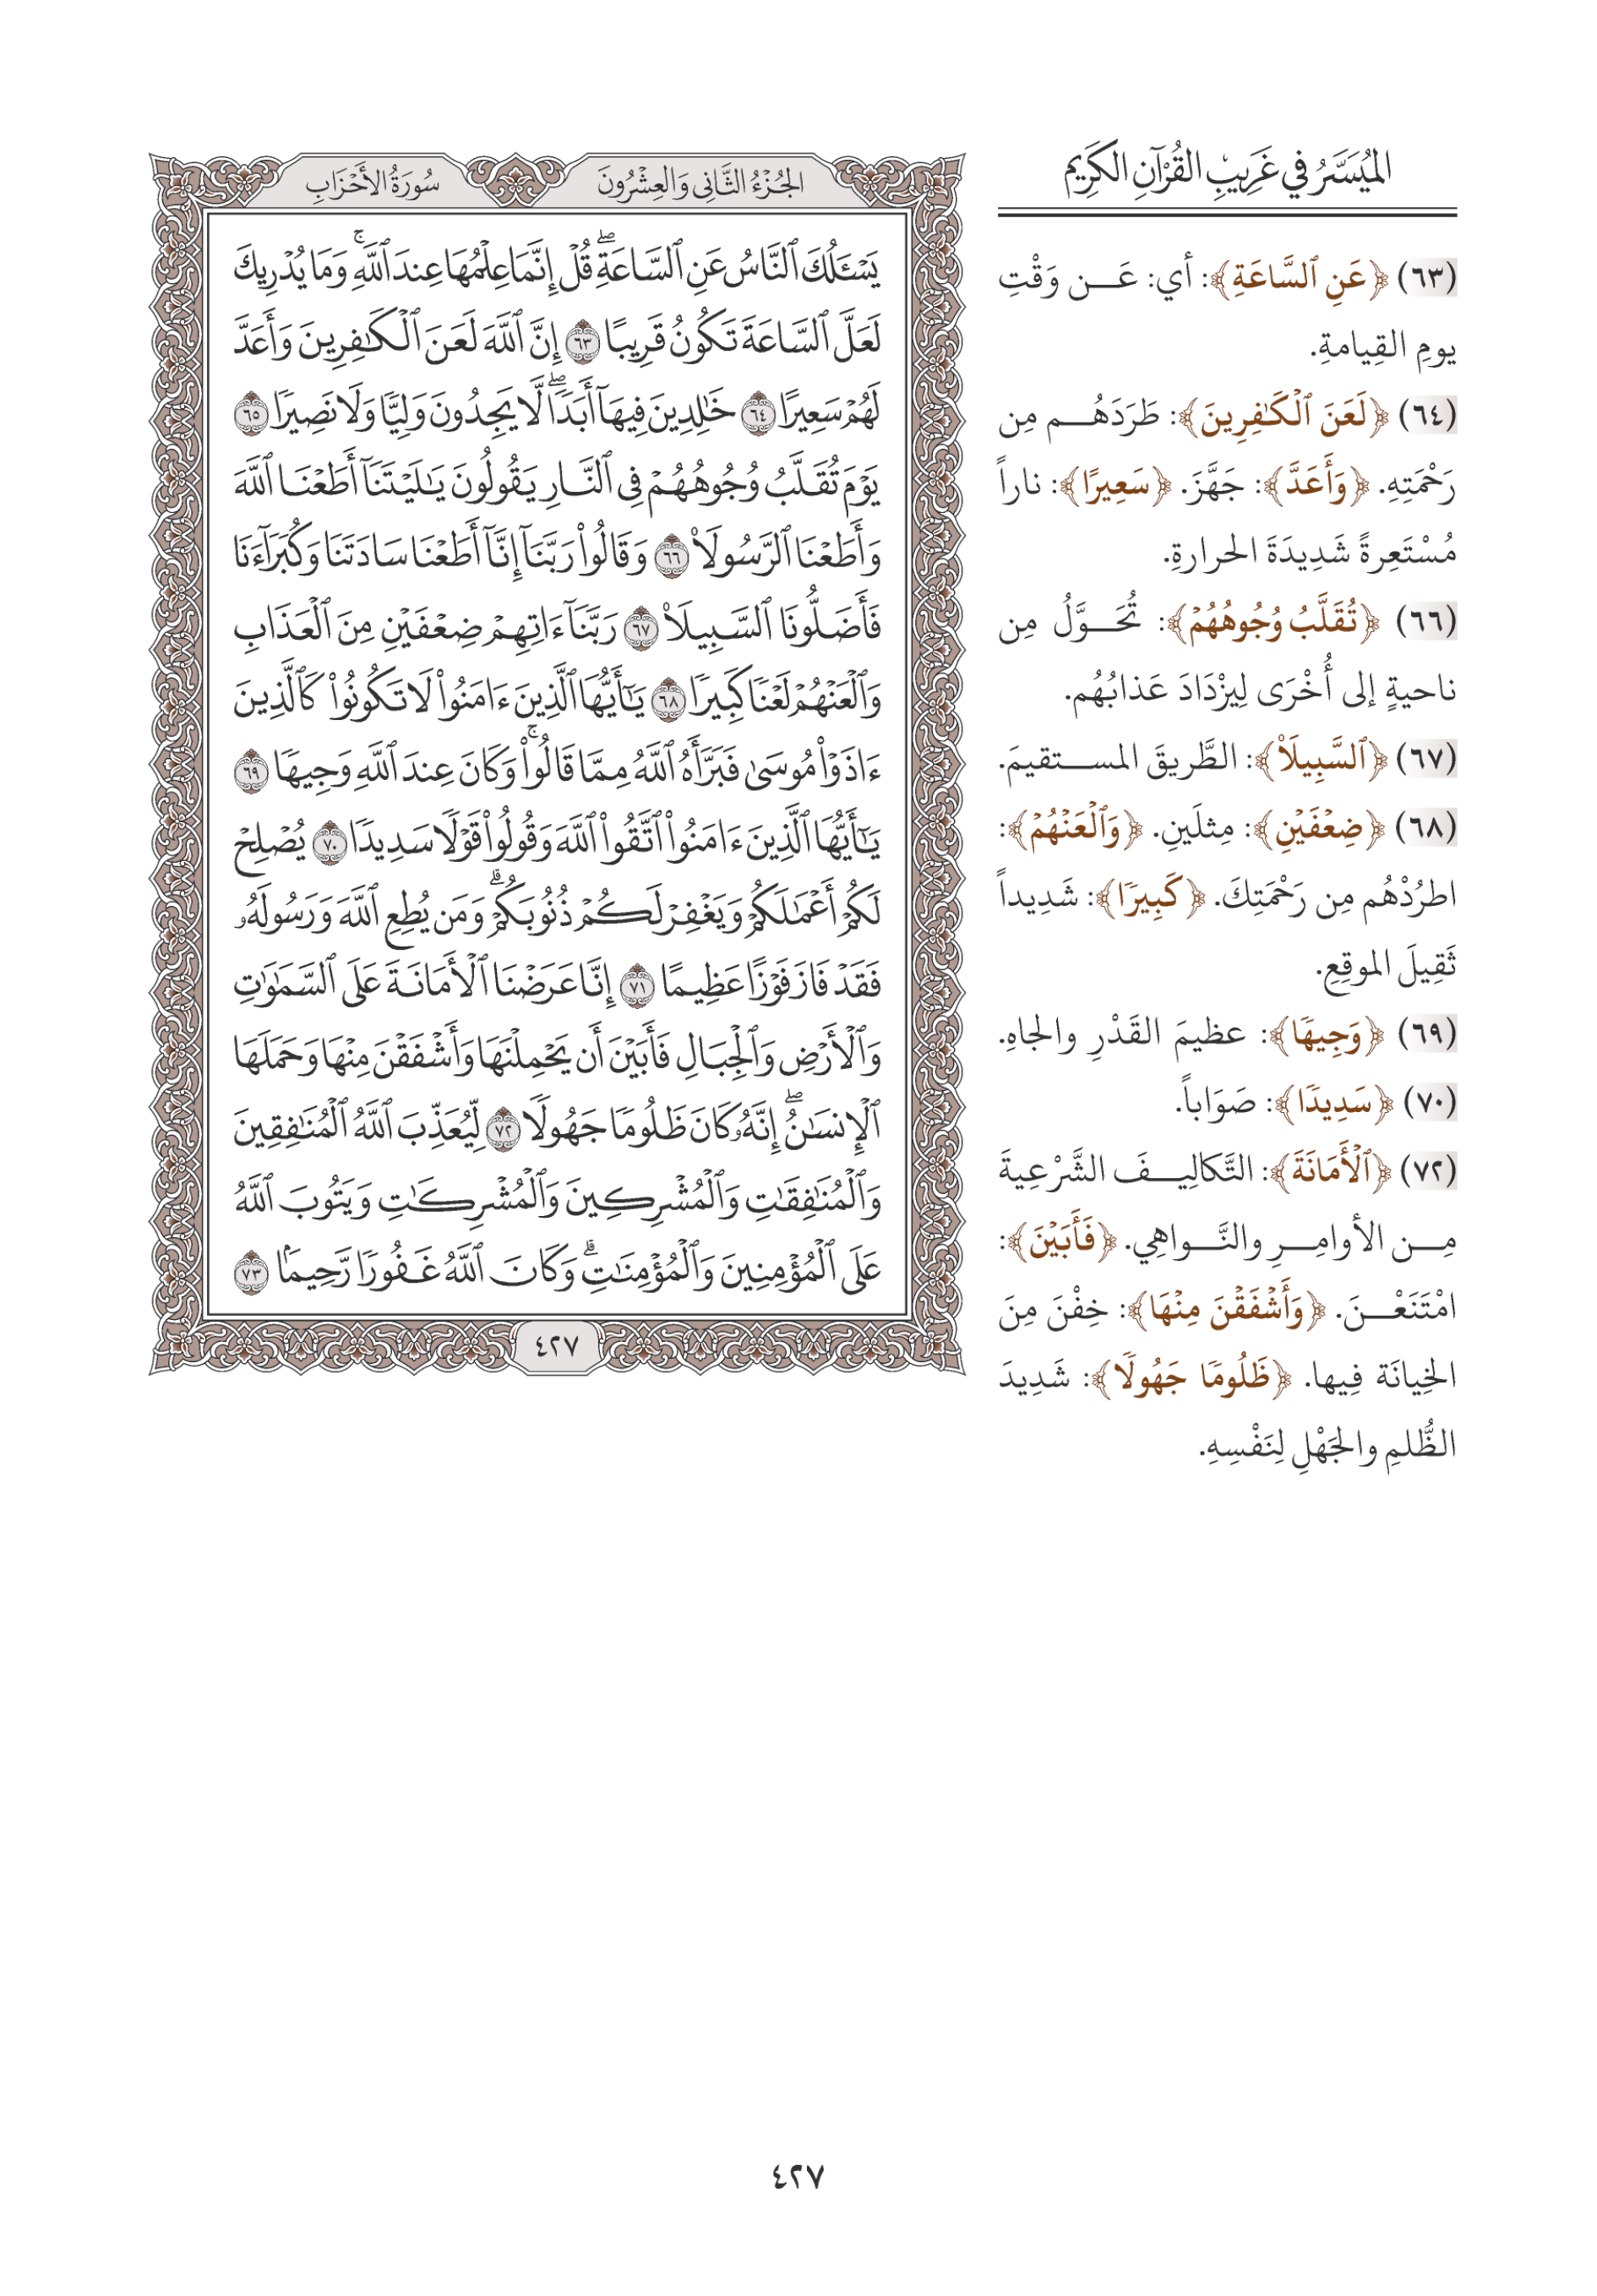 الميُسَّرُ في غَرِيبِ القُرْآنِ الكَرِيمِ
(٦٣) ﴿عَنِ ٱلسَّاعَةِ﴾: أي: عَـن وَقْتِ
يومِ القِيامةِ.
(٦٤) ﴿لَعَنَ ٱلْكَـٰفِرِينَ﴾: طَرَدَهُـم مِن
رَحْمَتِهِ. ﴿وَأَعَدَّ﴾: جَهَّزَ. ﴿سَعِيرًا﴾: ناراً
مُسْتَعِرةً شَدِيدَةَ الحرارةِ.
(٦٦) ﴿تُقَلَّبُ وُجُوهُهُمْ﴾: تُحَـوَّلُ مِن
ناحيةٍ إلى أُخْرَى لِيزْدَادَ عَذابُهُم.
(٦٧) ﴿ٱلسَّبِيلَا۠﴾: الطَّريقَ المسـتقيمَ.
(٦٨) ﴿ضِعْفَيْنِ﴾: مِثلَينِ. ﴿وَٱلْعَنْهُمْ﴾:
اطرُدْهُم مِن رَحْمَتِكَ. ﴿كَبِيرًا﴾: شَدِيداً
ثَقِيلَ الموقِعِ.
(٦٩) ﴿وَجِيهًا﴾: عظيمَ القَدْرِ والجاهِ.
(٧٠) ﴿سَدِيدًا﴾: صَوَاباً.
(٧٢) ﴿ٱلْأَمَانَةَ﴾: التَّكالِيـفَ الشَّرْعِيةَ
مِـن الأوامِـرِ والنَّـواهِي. ﴿فَأَبَيْنَ﴾:
امْتَنَعْـنَ. ﴿وَأَشْفَقْنَ مِنْهَا﴾: خِفْنَ مِنَ
الخِيانَة فِيها. ﴿ظَلُومًا جَهُولًا﴾: شَدِيدَ
الظُّلمِ والجَهْلِ لِنَفْسِهِ.
الجُزْءُ الثَّانِي وَالعِشْرُونَ
سُورَةُ الأَحْزَابِ
يَسْـَٔلُكَ ٱلنَّاسُ عَنِ ٱلسَّاعَةِۖ قُلْ إِنَّمَا عِلْمُهَا عِندَ ٱللَّهِۚ وَمَا يُدْرِيكَ
لَعَلَّ ٱلسَّاعَةَ تَكُونُ قَرِيبًا ٦٣ إِنَّ ٱللَّهَ لَعَنَ ٱلْكَـٰفِرِينَ وَأَعَدَّ
لَهُمْ سَعِيرًا ٦٤ خَـٰلِدِينَ فِيهَآ أَبَدًاۖ لَّا يَجِدُونَ وَلِيًّا وَلَا نَصِيرًا ٦٥
يَوْمَ تُقَلَّبُ وُجُوهُهُمْ فِى ٱلنَّارِ يَقُولُونَ يَـٰلَيْتَنَآ أَطَعْنَا ٱللَّهَ
وَأَطَعْنَا ٱلرَّسُولَا۠ ٦٦ وَقَالُوا۟ رَبَّنَآ إِنَّآ أَطَعْنَا سَادَتَنَا وَكُبَرَآءَنَا
فَأَضَلُّونَا ٱلسَّبِيلَا۠ ٦٧ رَبَّنَآ ءَاتِهِمْ ضِعْفَيْنِ مِنَ ٱلْعَذَابِ
وَٱلْعَنْهُمْ لَعْنًا كَبِيرًا ٦٨ يَـٰٓأَيُّهَا ٱلَّذِينَ ءَامَنُوا۟ لَا تَكُونُوا۟ كَٱلَّذِينَ
ءَاذَوْا۟ مُوسَىٰ فَبَرَّأَهُ ٱللَّهُ مِمَّا قَالُوا۟ۚ وَكَانَ عِندَ ٱللَّهِ وَجِيهًا ٦٩
يَـٰٓأَيُّهَا ٱلَّذِينَ ءَامَنُوا۟ ٱتَّقُوا۟ ٱللَّهَ وَقُولُوا۟ قَوْلًا سَدِيدًا ٧٠ يُصْلِحْ
لَكُمْ أَعْمَـٰلَكُمْ وَيَغْفِرْ لَكُمْ ذُنُوبَكُمْۗ وَمَن يُطِعِ ٱللَّهَ وَرَسُولَهُۥ
فَقَدْ فَازَ فَوْزًا عَظِيمًا ٧١ إِنَّا عَرَضْنَا ٱلْأَمَانَةَ عَلَى ٱلسَّمَـٰوَٰتِ
وَٱلْأَرْضِ وَٱلْجِبَالِ فَأَبَيْنَ أَن يَحْمِلْنَهَا وَأَشْفَقْنَ مِنْهَا وَحَمَلَهَا
ٱلْإِنسَـٰنُۖ إِنَّهُۥ كَانَ ظَلُومًا جَهُولًا ٧٢ لِّيُعَذِّبَ ٱللَّهُ ٱلْمُنَـٰفِقِينَ
وَٱلْمُنَـٰفِقَـٰتِ وَٱلْمُشْرِكِينَ وَٱلْمُشْرِكَـٰتِ وَيَتُوبَ ٱللَّهُ
عَلَى ٱلْمُؤْمِنِينَ وَٱلْمُؤْمِنَـٰتِۗ وَكَانَ ٱللَّهُ غَفُورًا رَّحِيمًۢا ٧٣
٤٢٧
٤٢٧